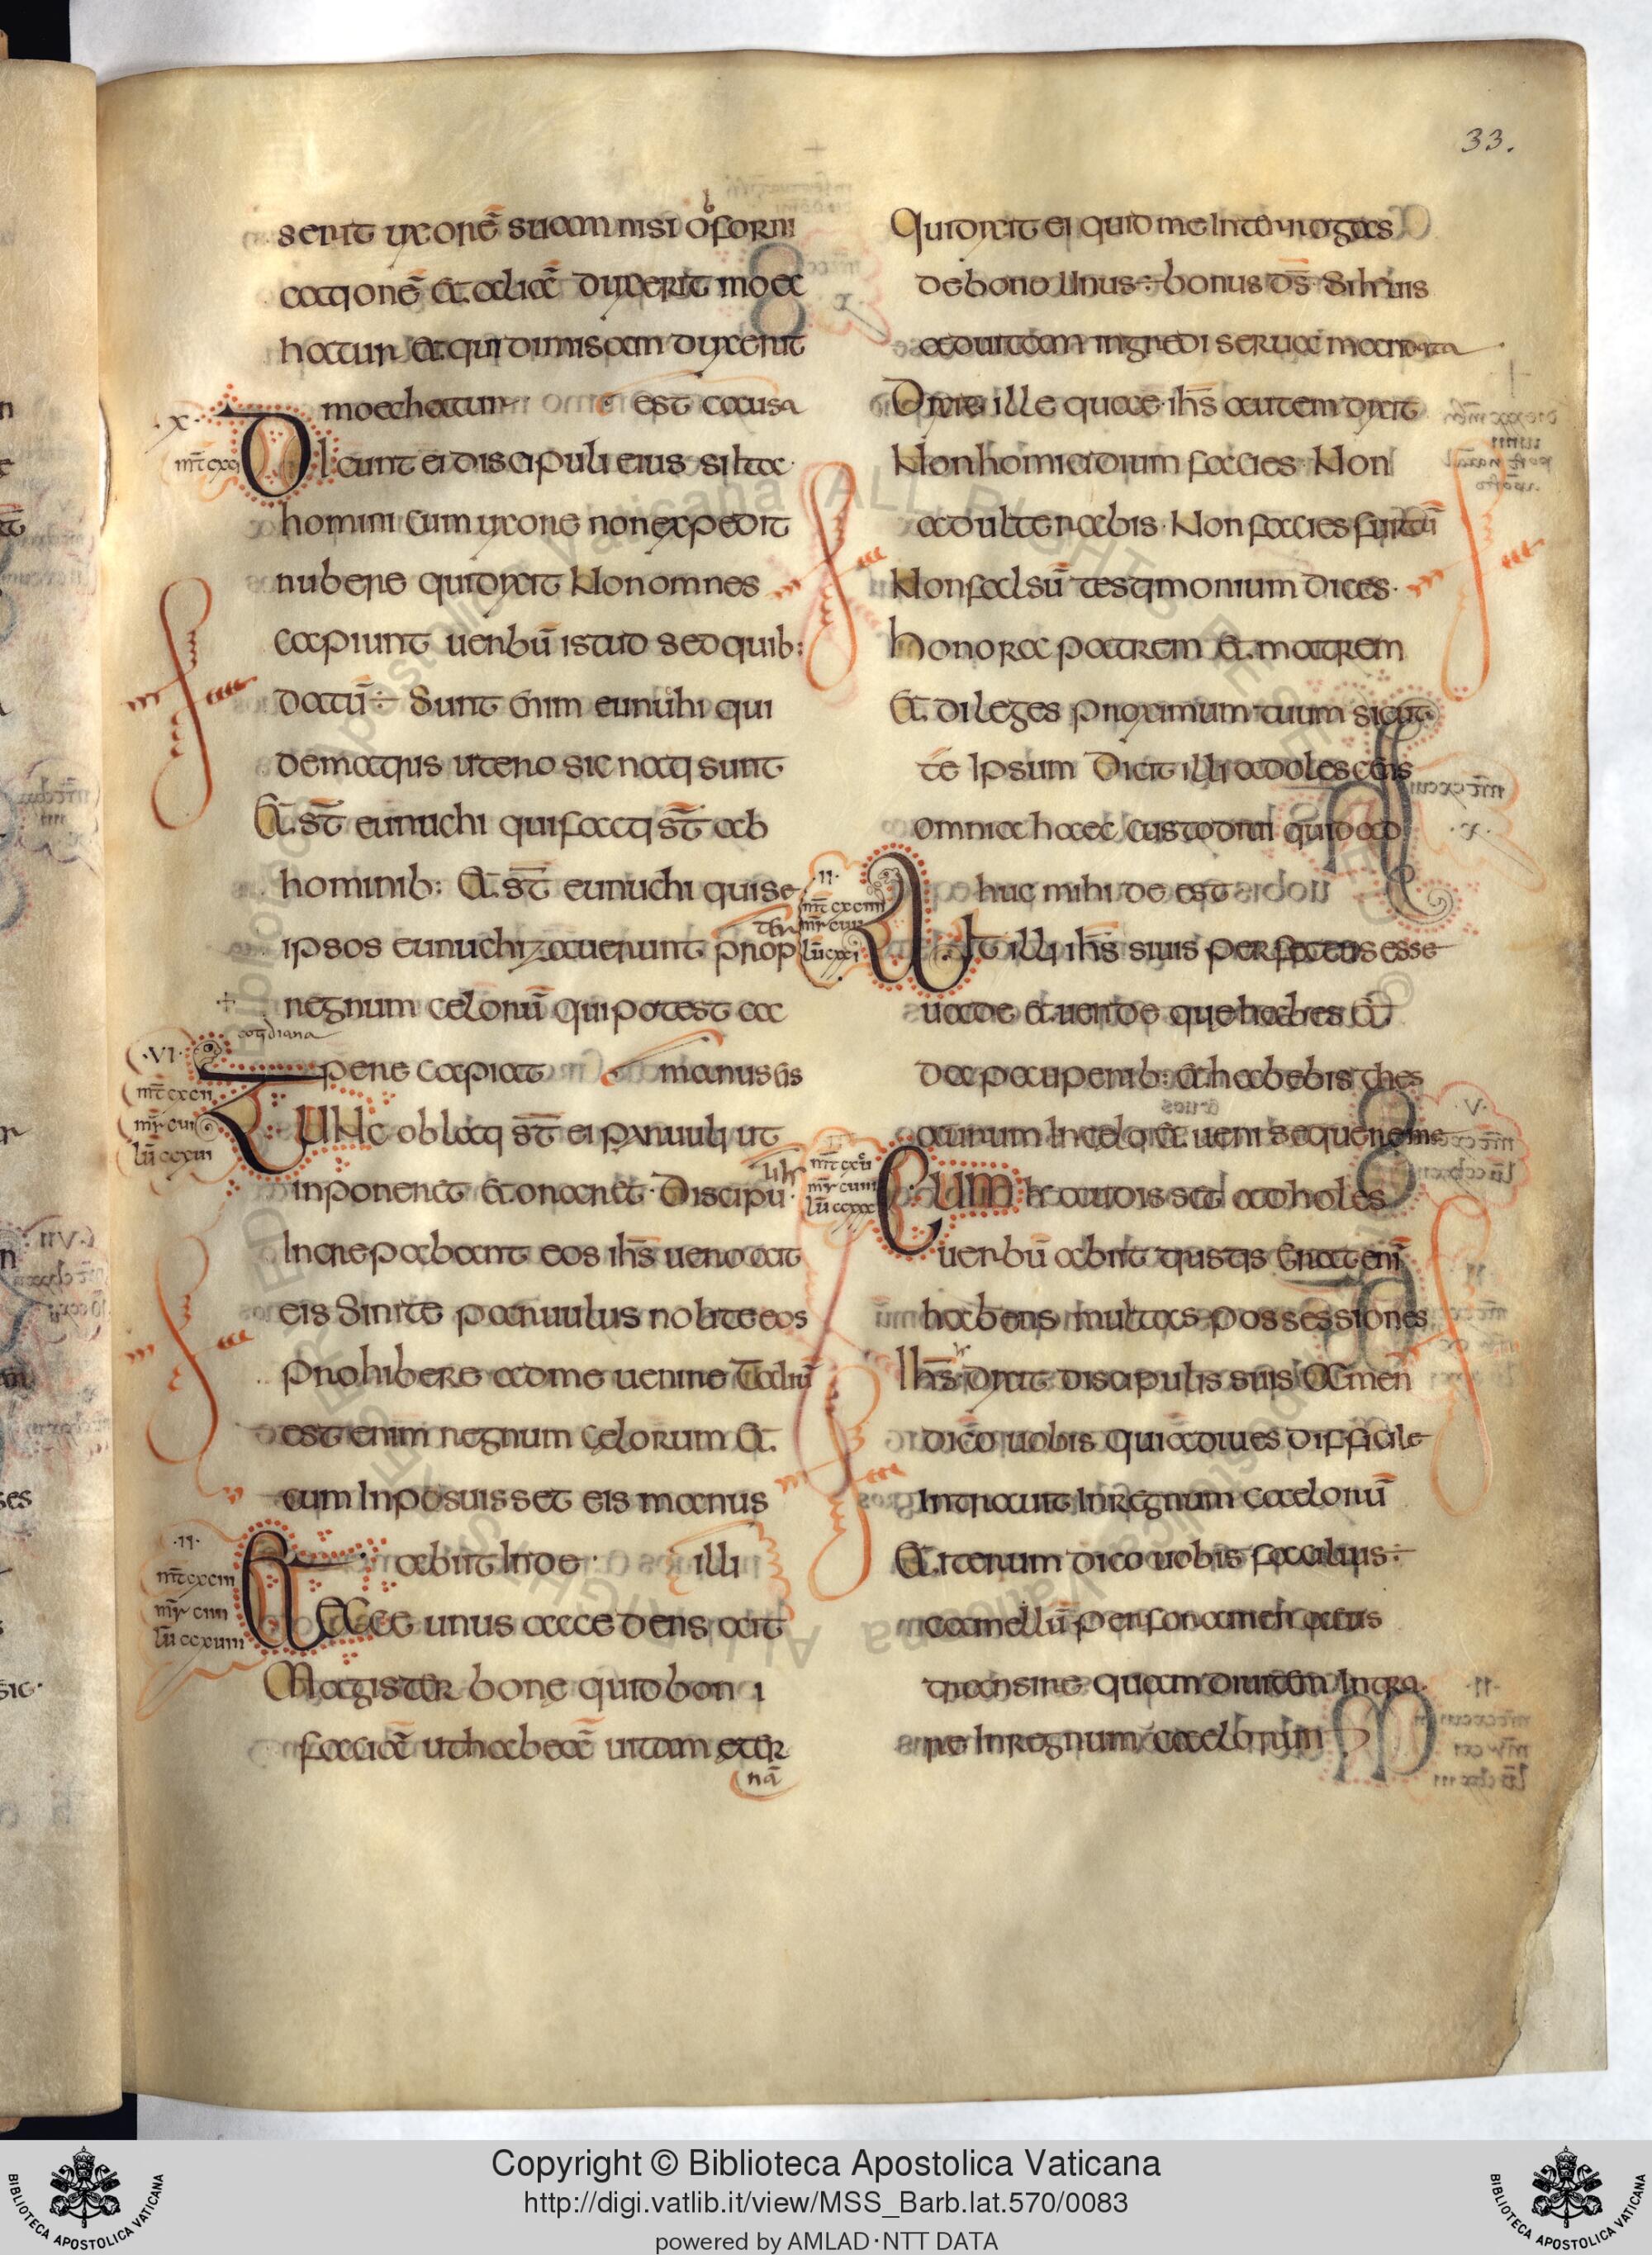 33.
serit uxorē suam nisi ob forni
cationē et aliā duxerit moec
hatur et qui dimisam duxerit
moechatur est causa
x
mt cxci
Dicunt ei discipuli eius si ita
homini cum uxore non expedit
nubere qui dixit Non omnes
capiunt uerbū istud sed quib:
datū ÷ Sunt enim eunuhi qui
de matris utero sic nati sunt
Et st̄ eunuchi qui facti st̄ ab
hominib: Et st̄ eunuchi qui se
ter
ipsos eunuchizauerunt prop
regnum celorū qui potest ca
cotidiana
pere capiat manus eis
VI
mt cxcii
mr cui
lū ccxui
TUNC oblati st̄ ei paruuli ut
inponeret et oraret Discipu
li hr
Increpabant eos ihs̄ uero ait
eis Sinite paruulus nolite eos
prohibere ad me uenire Taliū
est enim regnum celorum Et
cum Inposuisset eis manus
abiit Inde illi
II
mt cxciii
mr cuii
lū ccxuiii
Et Ecce unus accedens ait
Magister bone quid boni
faciā ut habeā uitam eter
nā
Qui dixit ei quid me Interrogas
de bono Unus ÷ bonus ds̄ Si h uis
ad uitam ingredi serua mandata
Dixit ille quae ihs̄ autem dixit
Non homicidium facies Non
adulterabis Non facies furtū
Non falsū testimonium dices
honora patrem et matrem
Et dileges proximum tuum sicut
té Ipsum Dicit illi adolescens
omnia haec custodiui quid ad
huc mihi de est
II
mt cxciiii
mr cuii
lū ccxi
AIt illi ihs̄ si uis perfectus esse
uade et uende que habes et
da pauperib: et habebis thes
aurum In celo et ueni sequere me
mt cxcu
mr cuiii
lū ccxx
CUM h audisset adholes
uerbū abiit tristis Erat enī
habens multas possessiones
Ihs̄ dixit discipulis suis Amen
dico uobis quia diues difficile
Intrauit In regnum caelorū
Et iterum dico uobis facilius ÷
camellū per foramen acus
transire quam diuitem Intra
re In regnum caelorum
Copyright © Biblioteca Apostolica Vaticana
http://digi.vatlib.it/view/MSS_Barb.lat.570/0083
powered by AMLAD·NTT DATA
BIBLIOTECA APOSTOLICA VATICANA
BIBLIOTECA APOSTOLICA VATICANA